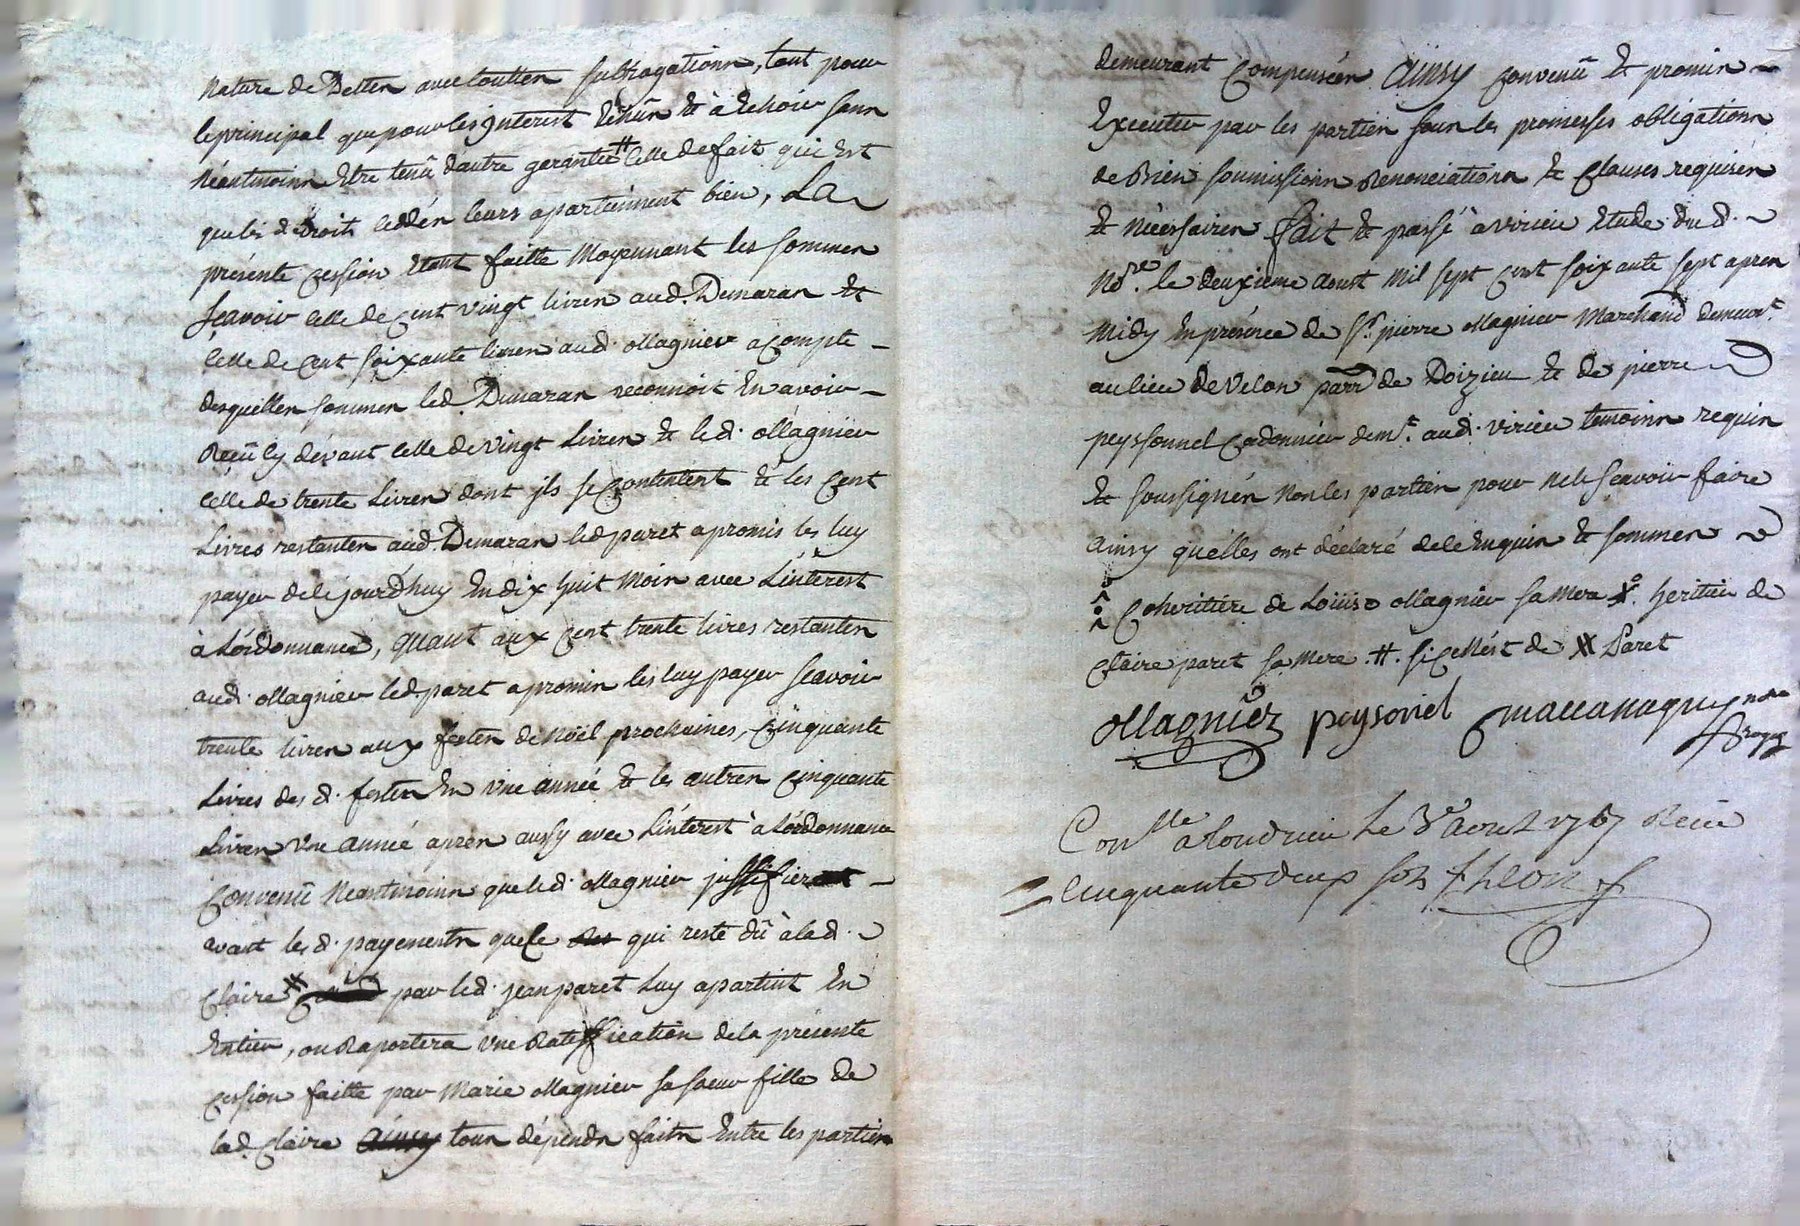 nature de Dettes avec touttes subrogations, tant pour
le principal que pour les jnterest Echûs & à Echoir sans
néantmoins Etre tenû dautre garantie # Celle de fait qui Est
que les d. droits ceddés leurs apartiennent bien, La
présente cession Etant faitte Moyennant les sommes
sçavoir Celle de Cent vingt livres aud. Dumaran &
Celle de Cent soixante livres aud. ollagnier acompte
desquelles sommes led. Dumaran reconnoit En avoir
Reçû Cy dévant Celle de Vingt Livres & le d. ollagnier
Celle de trente Livres dont jls se Contentent & les Cent
Livres restantes aud. Dumaran led paret a promis les luy
payer de cejourd'huy En dix huit mois avec L'intérest
à L'órdonnance, quant aux Cent trente livres restantes
aud. ollagnier led. paret a promis les luy payer sçavoir
trente livres aux festes de Noël prochaines, Cinquante
Livres des d. festes En Une année & les autres Cinquante
Livres Une année apres aussy avec L'intérest à L'órdonnance
Convenû Neantmoins que le d. ollagnier justifiera
avant les d. payements que Ce qui reste dû à lad.
Claire X par led. jean paret Luy apartint En
Entier, ou Raportera Une Ratiffication de la présente
cession faitte par Marie ollagnier sa sœur fille de
lad. Claire Ainsy tous dépends faits Entre les parties
demeurant Compensées Ainsy Convenû & promis
Executer par les parties sous les promesses obligations
de Biens soumissions Renonciations & Clauses requises
& nécessaires fait & passé à Virieu Etude du d.
No.re le deuxieme aoust mil sept cent soixante sept apres
midy En présence de Sr. pierre ollagnier Marchand demeur.t
au lieu de Velon parr. de Doizieu & de pierre
peyssonnel Cordonnier dem.t aud. Virieu temoins requis
& soussignés Non les parties pour ne le sçavoir faire
Ainsy qu'elles ont déclaré de ce Enquis & sommes
Coheritiére de Loüise ollagnier sa Mere X. heritier de
Claire paret sa Mere .#. si ce N'est de X Paret
ollagniër peysonel
Con.lle a Condrieu Le 3e aoust 1767 Reçu
Cinquante deux sols